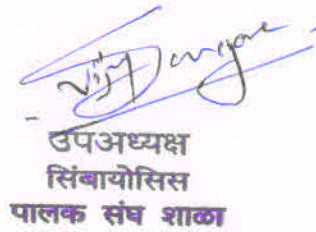 उपअध्यक्ष
सिंबायोसिस
पालक संघ शाळा